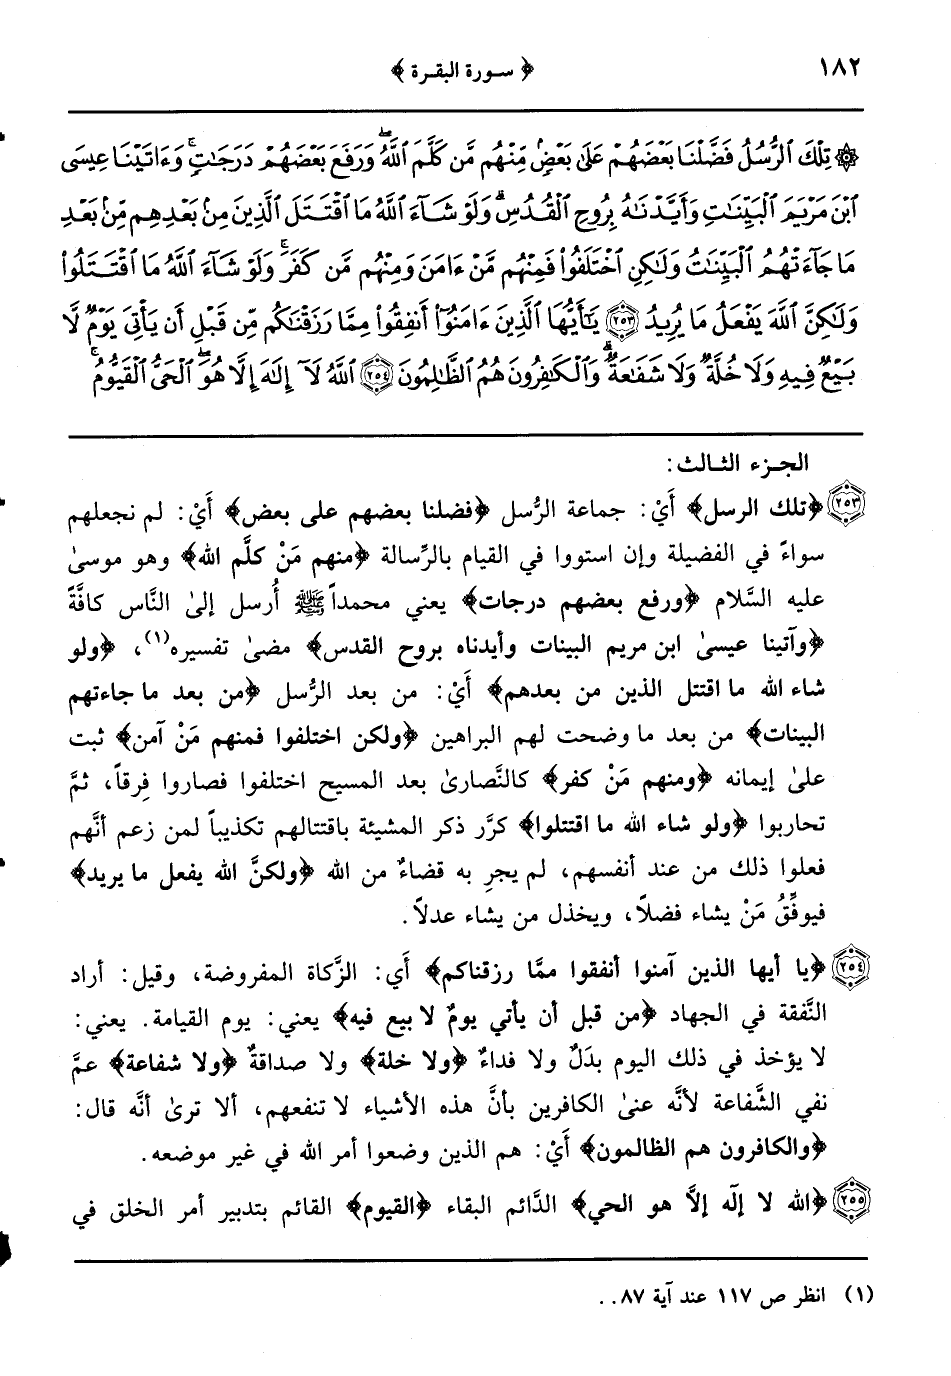 ١٨٢
﴿ سورة البقرة ﴾
۞ تِلْكَ ٱلرُّسُلُ فَضَّلْنَا بَعْضَهُمْ عَلَىٰ بَعْضٍۘ مِّنْهُم مَّن كَلَّمَ ٱللَّهُۖ وَرَفَعَ بَعْضَهُمْ دَرَجَـٰتٍۚ وَءَاتَيْنَا عِيسَى
ٱبْنَ مَرْيَمَ ٱلْبَيِّنَـٰتِ وَأَيَّدْنَـٰهُ بِرُوحِ ٱلْقُدُسِۗ وَلَوْ شَآءَ ٱللَّهُ مَا ٱقْتَتَلَ ٱلَّذِينَ مِنۢ بَعْدِهِم مِّنۢ بَعْدِ
مَا جَآءَتْهُمُ ٱلْبَيِّنَـٰتُ وَلَـٰكِنِ ٱخْتَلَفُوا۟ فَمِنْهُم مَّنْ ءَامَنَ وَمِنْهُم مَّن كَفَرَۚ وَلَوْ شَآءَ ٱللَّهُ مَا ٱقْتَتَلُوا۟
وَلَـٰكِنَّ ٱللَّهَ يَفْعَلُ مَا يُرِيدُ ٢٥٣ يَـٰٓأَيُّهَا ٱلَّذِينَ ءَامَنُوٓا۟ أَنفِقُوا۟ مِمَّا رَزَقْنَـٰكُم مِّن قَبْلِ أَن يَأْتِىَ يَوْمٌ لَّا
بَيْعٌ فِيهِ وَلَا خُلَّةٌ وَلَا شَفَـٰعَةٌۗ وَٱلْكَـٰفِرُونَ هُمُ ٱلظَّـٰلِمُونَ ٢٥٤ ٱللَّهُ لَآ إِلَـٰهَ إِلَّا هُوَۖ ٱلْحَىُّ ٱلْقَيُّومُۚ
الجزء الثالث:
٢٥٣ ﴿تلك الرسل﴾ أَيْ: جماعة الرُّسل ﴿فضلنا بعضهم على بعض﴾ أَيْ: لم نجعلهم
سواءً في الفضيلة وإن استووا في القيام بالرِّسالة ﴿منهم مَنْ كلَّم الله﴾ وهو موسىٰ
عليه السَّلام ﴿ورفع بعضهم درجات﴾ يعني محمداً ﷺ أُرسل إلىٰ النَّاس كافَّةً
﴿وآتينا عيسىٰ ابن مريم البينات وأيدناه بروح القدس﴾ مضىٰ تفسيره(١)، ﴿ولو
شاء الله ما اقتتل الذين من بعدهم﴾ أَيْ: من بعد الرُّسل ﴿من بعد ما جاءتهم
البينات﴾ من بعد ما وضحت لهم البراهين ﴿ولكن اختلفوا فمنهم مَنْ آمن﴾ ثبت
علىٰ إيمانه ﴿ومنهم مَنْ كفر﴾ كالنَّصارىٰ بعد المسيح اختلفوا فصاروا فِرقاً، ثمَّ
تحاربوا ﴿ولو شاء الله ما اقتتلوا﴾ كرَّر ذكر المشيئة باقتتالهم تكذيباً لمن زعم أنَّهم
فعلوا ذلك من عند أنفسهم، لم يجرِ به قضاءٌ من الله ﴿ولكنَّ الله يفعل ما يريد﴾
فيوفِّقُ مَنْ يشاء فضلاً، ويخذل من يشاء عدلاً.
٢٥٤ ﴿يا أيها الذين آمنوا أنفقوا ممَّا رزقناكم﴾ أَي: الزَّكاة المفروضة، وقيل: أراد
النَّفقة في الجهاد ﴿من قبل أن يأتي يومٌ لا بيع فيه﴾ يعني: يوم القيامة. يعني:
لا يؤخذ في ذلك اليوم بدَلٌ ولا فداءٌ ﴿ولا خلة﴾ ولا صداقةٌ ﴿ولا شفاعة﴾ عمَّ
نفي الشَّفاعة لأنَّه عنىٰ الكافرين بأنَّ هذه الأشياء لا تنفعهم، ألا ترىٰ أنَّه قال:
﴿والكافرون هم الظالمون﴾ أَيْ: هم الذين وضعوا أمر الله في غير موضعه.
٢٥٥ ﴿الله لا إلٰه إلاَّ هو الحي﴾ الدَّائم البقاء ﴿القيوم﴾ القائم بتدبير أمر الخلق في
(١) انظر ص ١١٧ عند آية ٨٧..